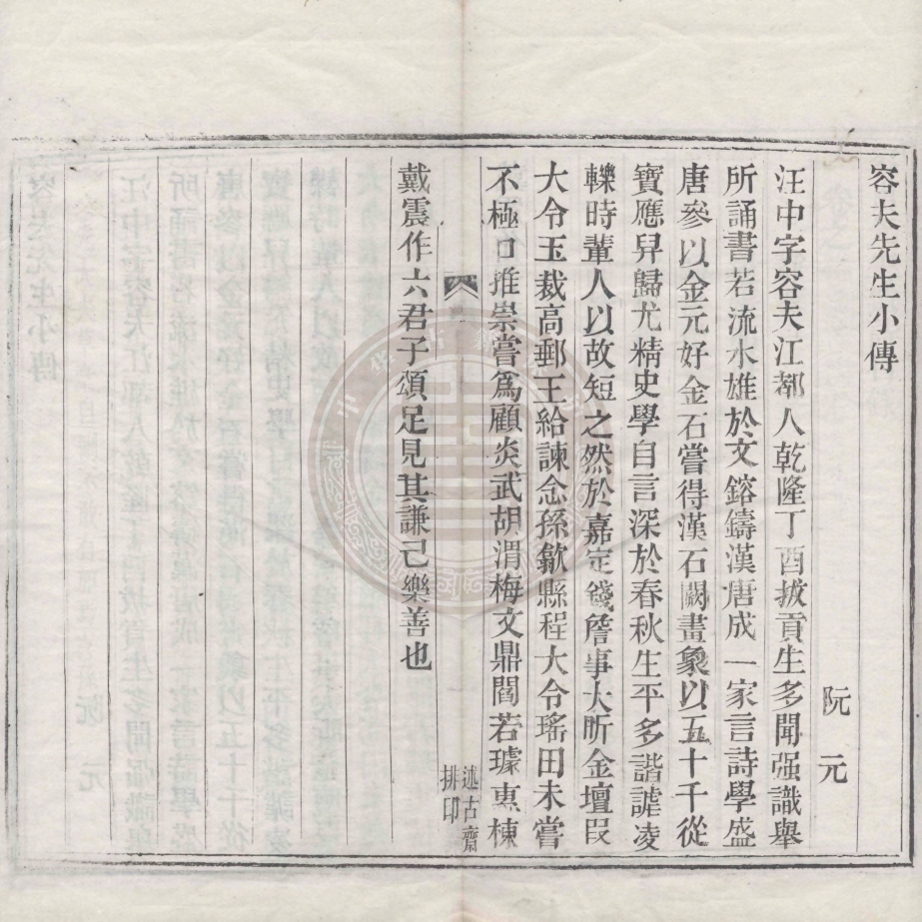 容夫先生小傳
阮元
汪中字容夫江都人乾隆丁酉拔貢生多聞强識舉
所誦書若流水雄於文鎔鑄漢唐成一家言詩學盛
唐參以金元好金石嘗得漢石闕畫象以五十千從
寶應舁歸尤精史學自言深於春秋生平多諧謔凌
轢時輩人以故短之然於嘉定錢詹事大昕金壇段
大令玉裁高郵王給諫念孫歙縣程大令瑤田未嘗
不極口推崇嘗爲顧炎武胡渭梅文鼎閻若璩惠棟
戴震作六君子頌足見其謙己樂善也
述古齋
排印